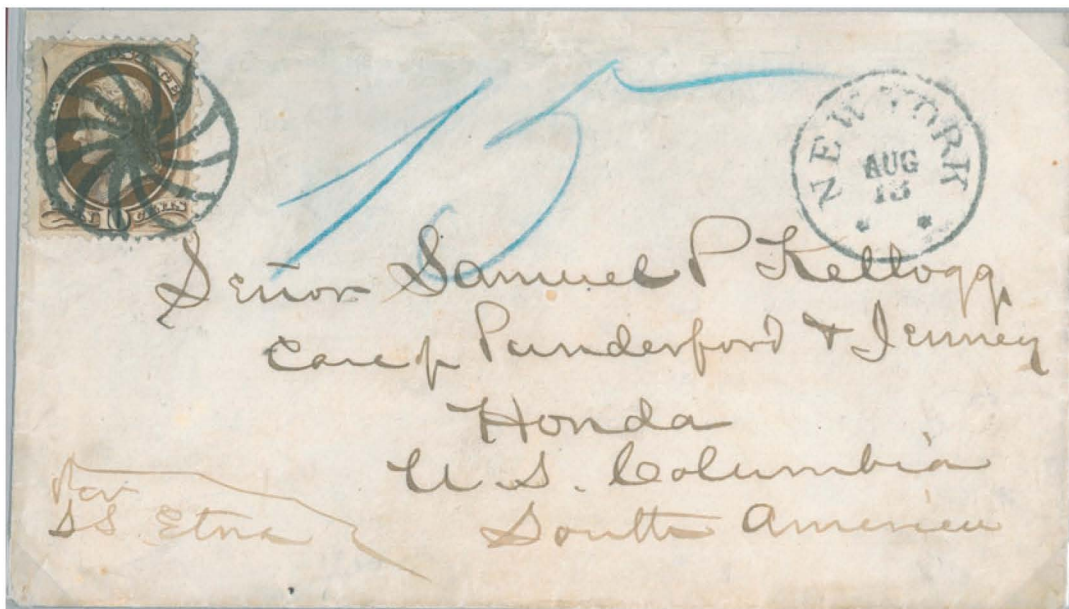 15
NEW YORK
AUG
13
Señor Samuel P Kellogg
Care of Punderford & Jenney
Honda
U.S. Columbia
South America
per
SS Etna
10